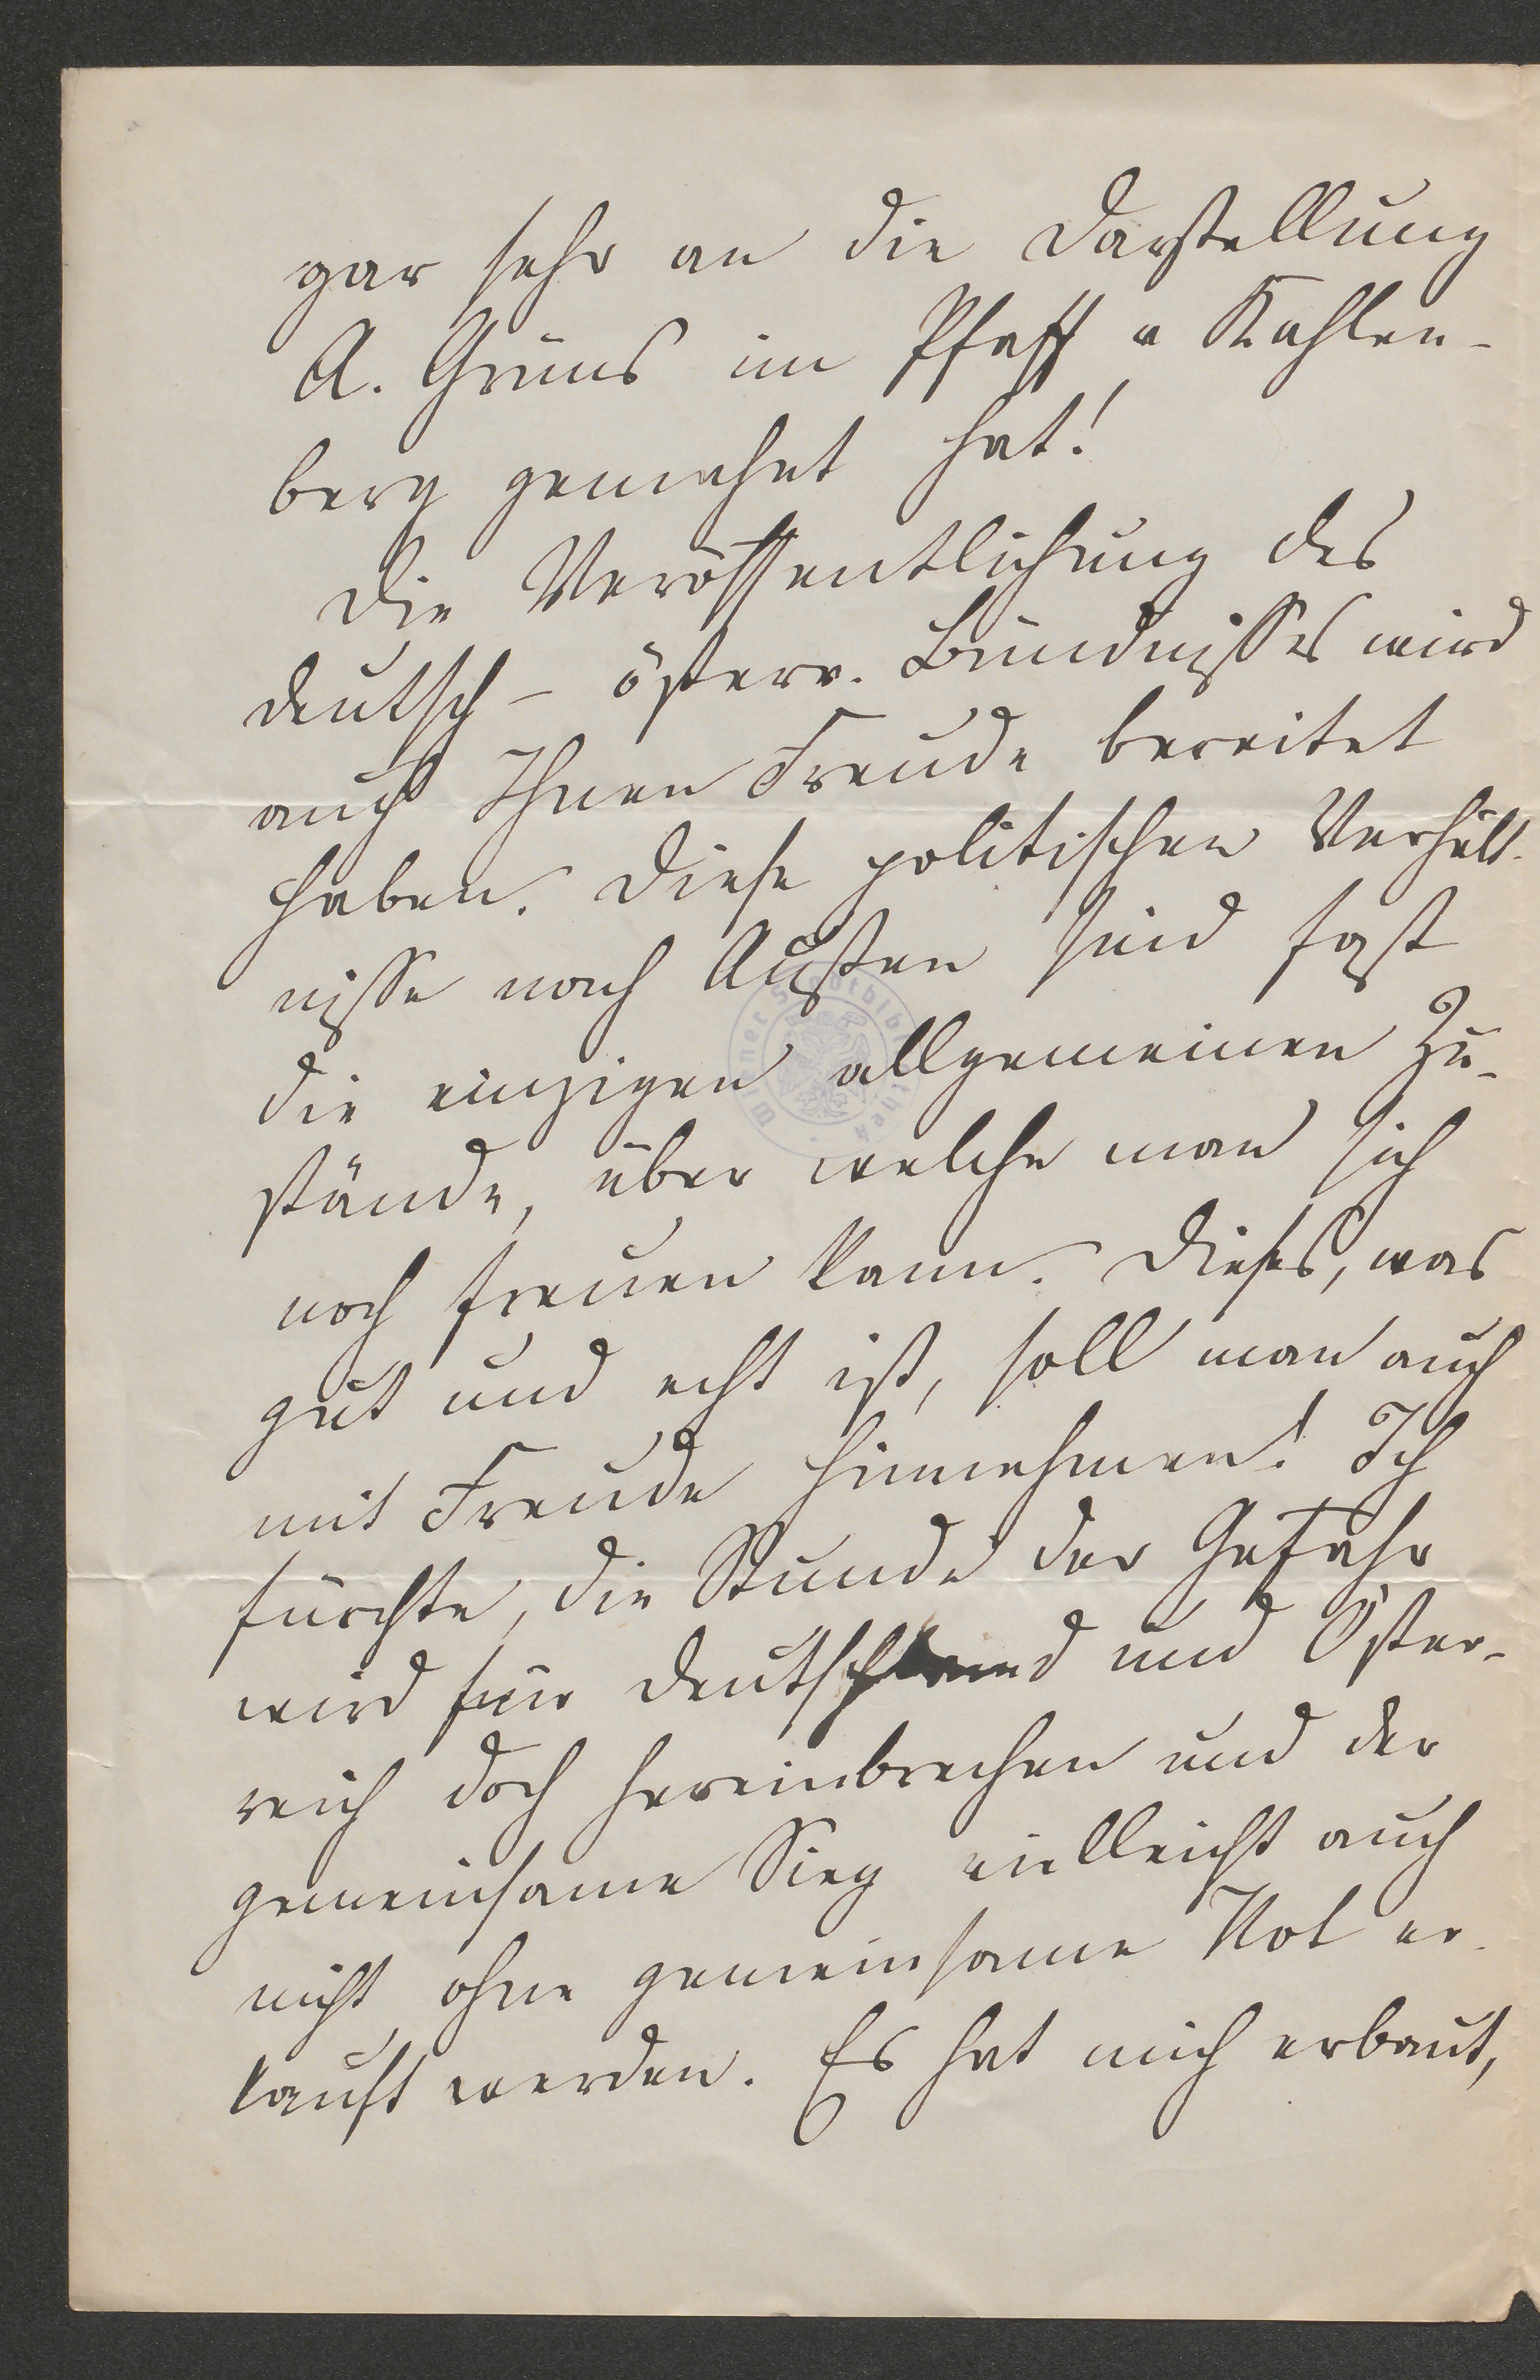 gar sehr an die Darstellung
A. Grüns im Pfaff v Kahlen-
berg gemahnt hat!
Die Veröffentlichung des
deutsch-österr. Bündnisses wird
auch Ihnen Freude bereitet
haben. Diese politischen Verhält-
nisse nach Außen sind fast
die einzigen allgemeinen Zu-
stände, über welche man sich
noch freuen kann. Dieses, was
gut und echt ist, soll man auch
mit Freude hinnehmen! Ich
fürchte, die Stunde der Gefahr
wird für Deutschland und Öster-
reich doch hereinbrechen und der
gemeinsame Sieg vielleicht auch
nicht ohne gemeinsame Not er-
kauft werden. Es hat mich erbaut,
Wiener Stadtbibliothek